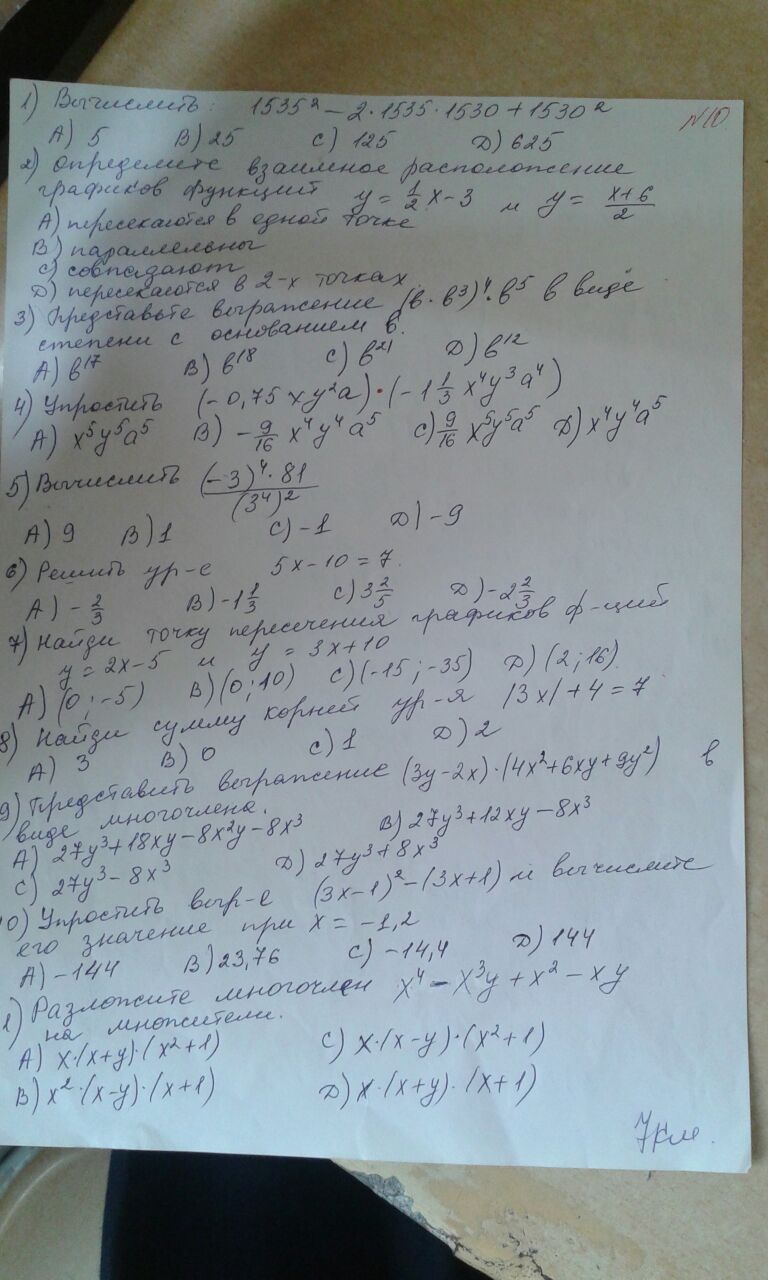 N10.
1) Вычислить: 1535² – 2·1535·1530 + 1530²
A) 5 B) 25 C) 125 D) 625
2) Определите взаимное расположение
графиков функций y = 1/2 x – 3 и y = (x+6)/2
A) пересекаются в одной точке
B) параллельны
C) совпадают
D) пересекаются в 2-х точках
3) Представьте выражение (b·b³)⁴·b⁵ в виде
степени с основанием b.
A) b¹⁷ B) b¹⁸ C) b²¹ D) b¹²
4) Упростить (–0,75xy²a)·(–1 1/3 x⁴y³a⁴)
A) x⁵y⁵a⁵ B) –9/16 x⁴y⁴a⁵ C) 9/16 x⁵y⁵a⁵ D) x⁴y⁴a⁵
5) Вычислить (–3)⁴·81/(3⁴)²
A) 9 B) 1 C) –1 D) –9
6) Решить ур-е 5x–10=7.
A) –2/3 B) –1 1/3 C) 3 2/5 D) –2 2/3
7) Найди точку пересечения графиков ф-ций
y = 2x–5 и y = 3x+10
A) (0; –5) B) (0; 10) C) (–15; –35) D) (2; 16).
8) Найди сумму корней ур-я |3x|+4=7
A) 3 B) 0 C) 1 D) 2
9) Представить выражение (3y–2x)·(4x²+6xy+9y²) в
виде многочлена.
A) 27y³+18xy–8x²y–8x³ B) 27y³+12xy–8x³
C) 27y³–8x³ D) 27y³+8x³
0) Упростить выр-е (3x–1)²–(3x+1) и вычислите
его значение при x = –1,2
A) –144 B) 23,76 C) –14,4 D) 144
1) Разложите многочлен x⁴–x³y+x²–xy
на множители.
A) x·(x+y)·(x²+1) C) x·(x–y)·(x²+1)
B) x²·(x–y)·(x+1) D) x·(x+y)·(x+1)
7кл.